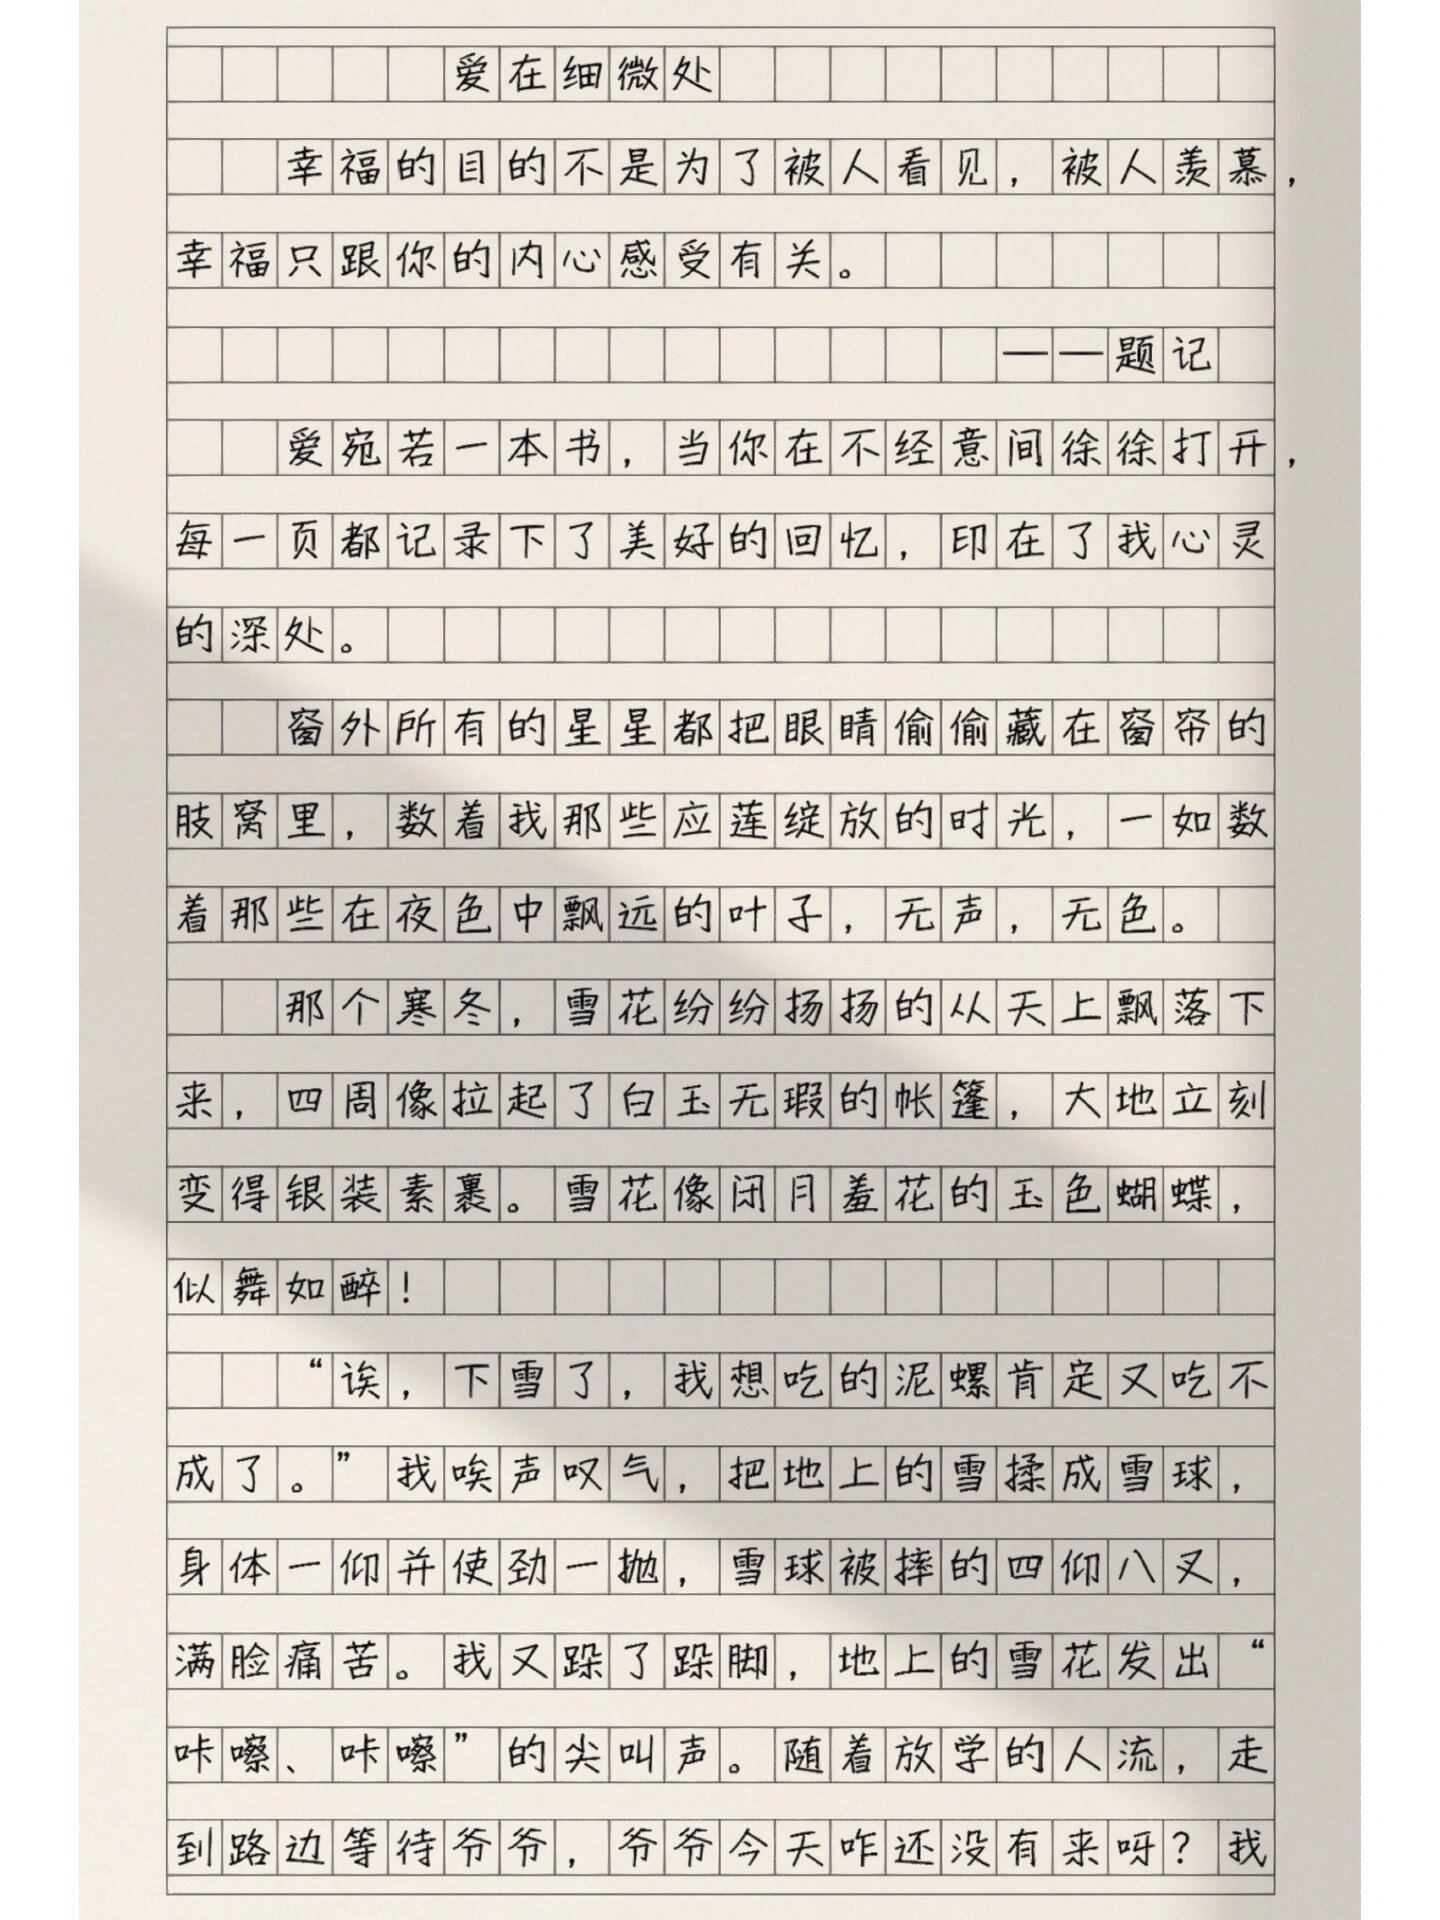 爱在细微处
幸福的目的不是为了被人看见，被人羡慕，
幸福只跟你的内心感受有关。
——题记
爱宛若一本书，当你在不经意间徐徐打开，
每一页都记录下了美好的回忆，印在了我心灵
的深处。
窗外所有的星星都把眼睛偷偷藏在窗帘的
肢窝里，数着我那些应莲绽放的时光，一如数
着那些在夜色中飘远的叶子，无声，无色。
那个寒冬，雪花纷纷扬扬的从天上飘落下
来，四周像拉起了白玉无瑕的帐篷，大地立刻
变得银装素裹。雪花像闭月羞花的玉色蝴蝶，
似舞如醉！
“诶，下雪了，我想吃的泥螺肯定又吃不
成了。”我唉声叹气，把地上的雪揉成雪球，
身体一仰并使劲一抛，雪球被摔的四仰八叉，
满脸痛苦。我又跺了跺脚，地上的雪花发出“
咔嚓、咔嚓”的尖叫声。随着放学的人流，走
到路边等待爷爷，爷爷今天咋还没有来呀？我